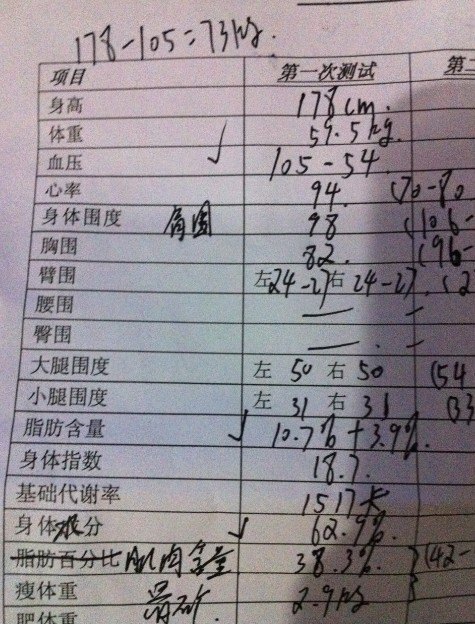 178-105=73kg.
项目 第一次测试 第二
身高 178cm.
体重 59.5kg.
血压 105-54
心率 94. (70-80
身体围度 肩围 98 (106-
胸围 82. (96-
臂围 左24-27右 24-27. (2
腰围 — -
臀围 — . -
大腿围度 左 50 右 50 (54
小腿围度 左 31 右 31 (33
脂肪含量 10.7% +3.9%.
身体指数 18.7.
基础代谢率 1517卡
身体水分 62.9%.
脂肪百分比 肌肉含量 38.3%. (42-
瘦体重 骨矿. 2.9kg
肥体重